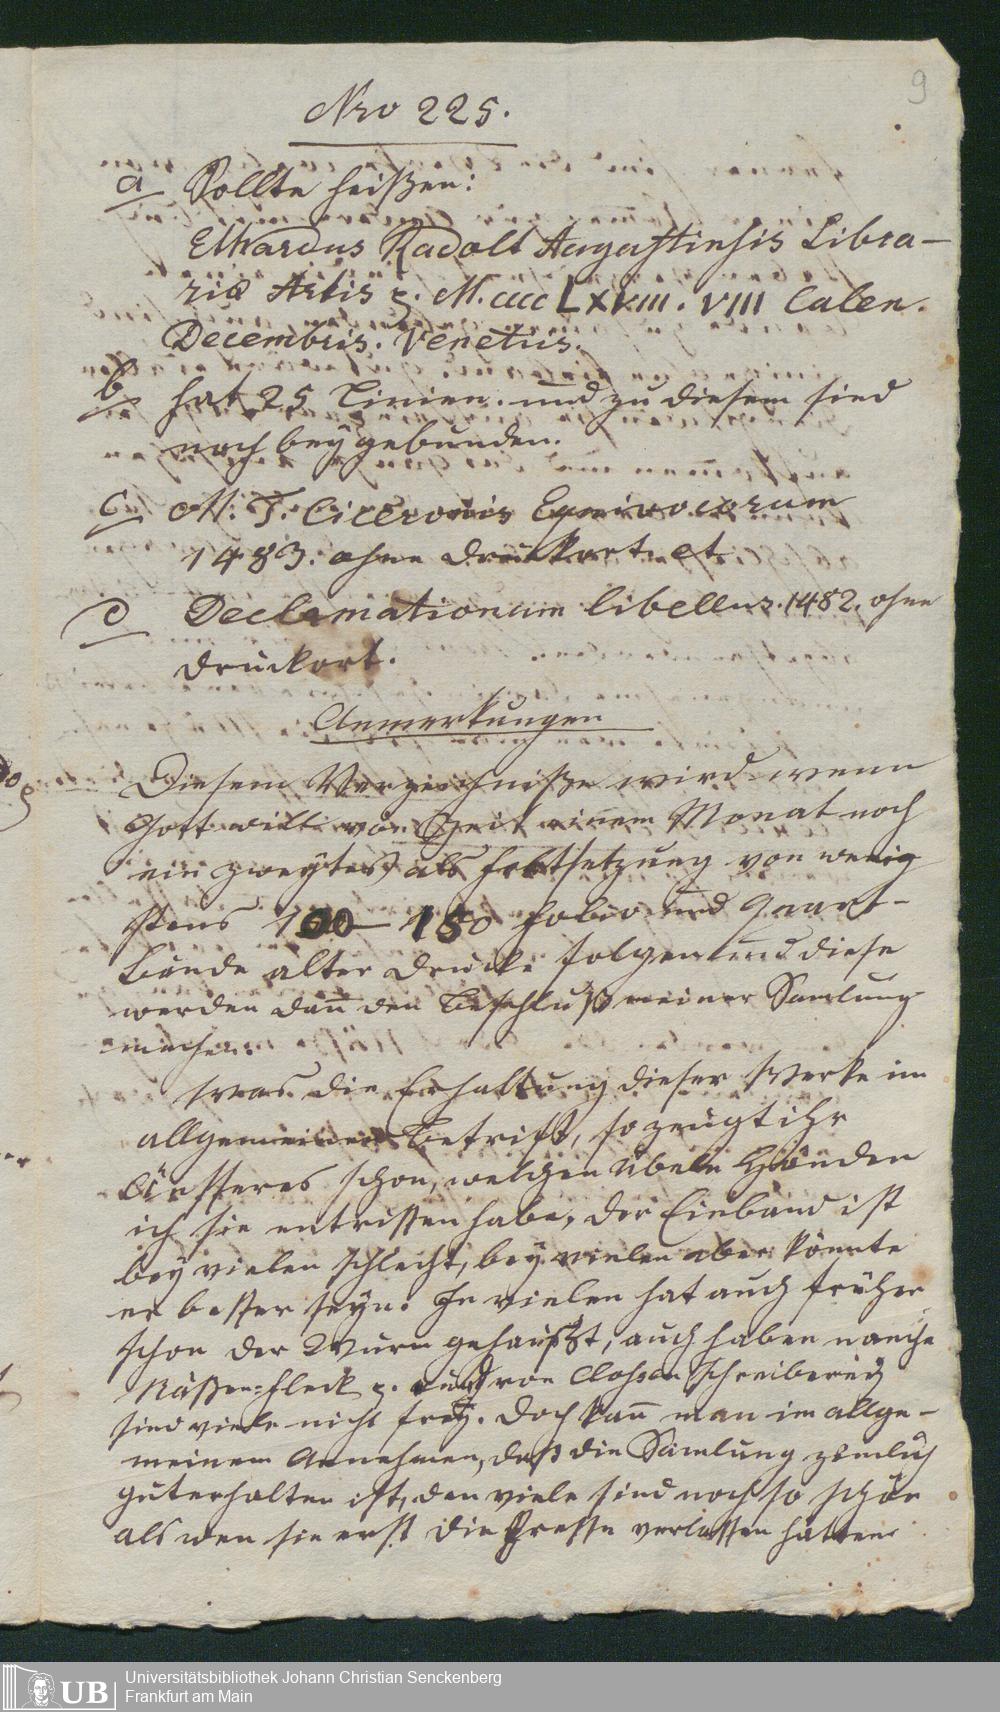 9
Nro 225.
a Sollte heißen:
Elhardus Radolt Augustinsis Libra-
riæ Artis z. M. cccc LXXIII. VIII Calen.
Decembris. Venetiis.
b hat 25 Linien. und zu diesem sind
noch bey gebunden.
c M. T. Ciceronis Equivocorum
1483. ohne Druckort. et
D Declamationum libellus. 1482. ohne
Druckort.
Anmerkungen
Diesem Verzeichniße wird wenn
Gott will vor Zeit einem Monat noch
ein zweytes als Fortsetzung von wenig
stens 100 – 150 Folio und Quart-
bände alter Drucke folgen und diese
werden dañ den Beschluß meiner Samlung
machen.
Was die Erhaltung dieser Werke im
allgemeinen Betrift, so zeugt ihr
Äusseres schon, welchen übeln Händen
ich sie entrissen habe, der Einband ist
bey vielen schlecht, bey vielen aber könnte
er besser seyn. In vielen hat auch früher
schon der Wurm gehaußt, auch haben manche
Näßen-fleck z. und von Schreiberey
sind viele nicht frey. Doch kañ man im allge-
meinem Annehmen, daß die Samlung zimlich
gut erhalten ist, den viele sind noch so schön
als wen sie erst die Presse verlassen hätten.
UB Universitätsbibliothek Johann Christian Senckenberg
Frankfurt am Main